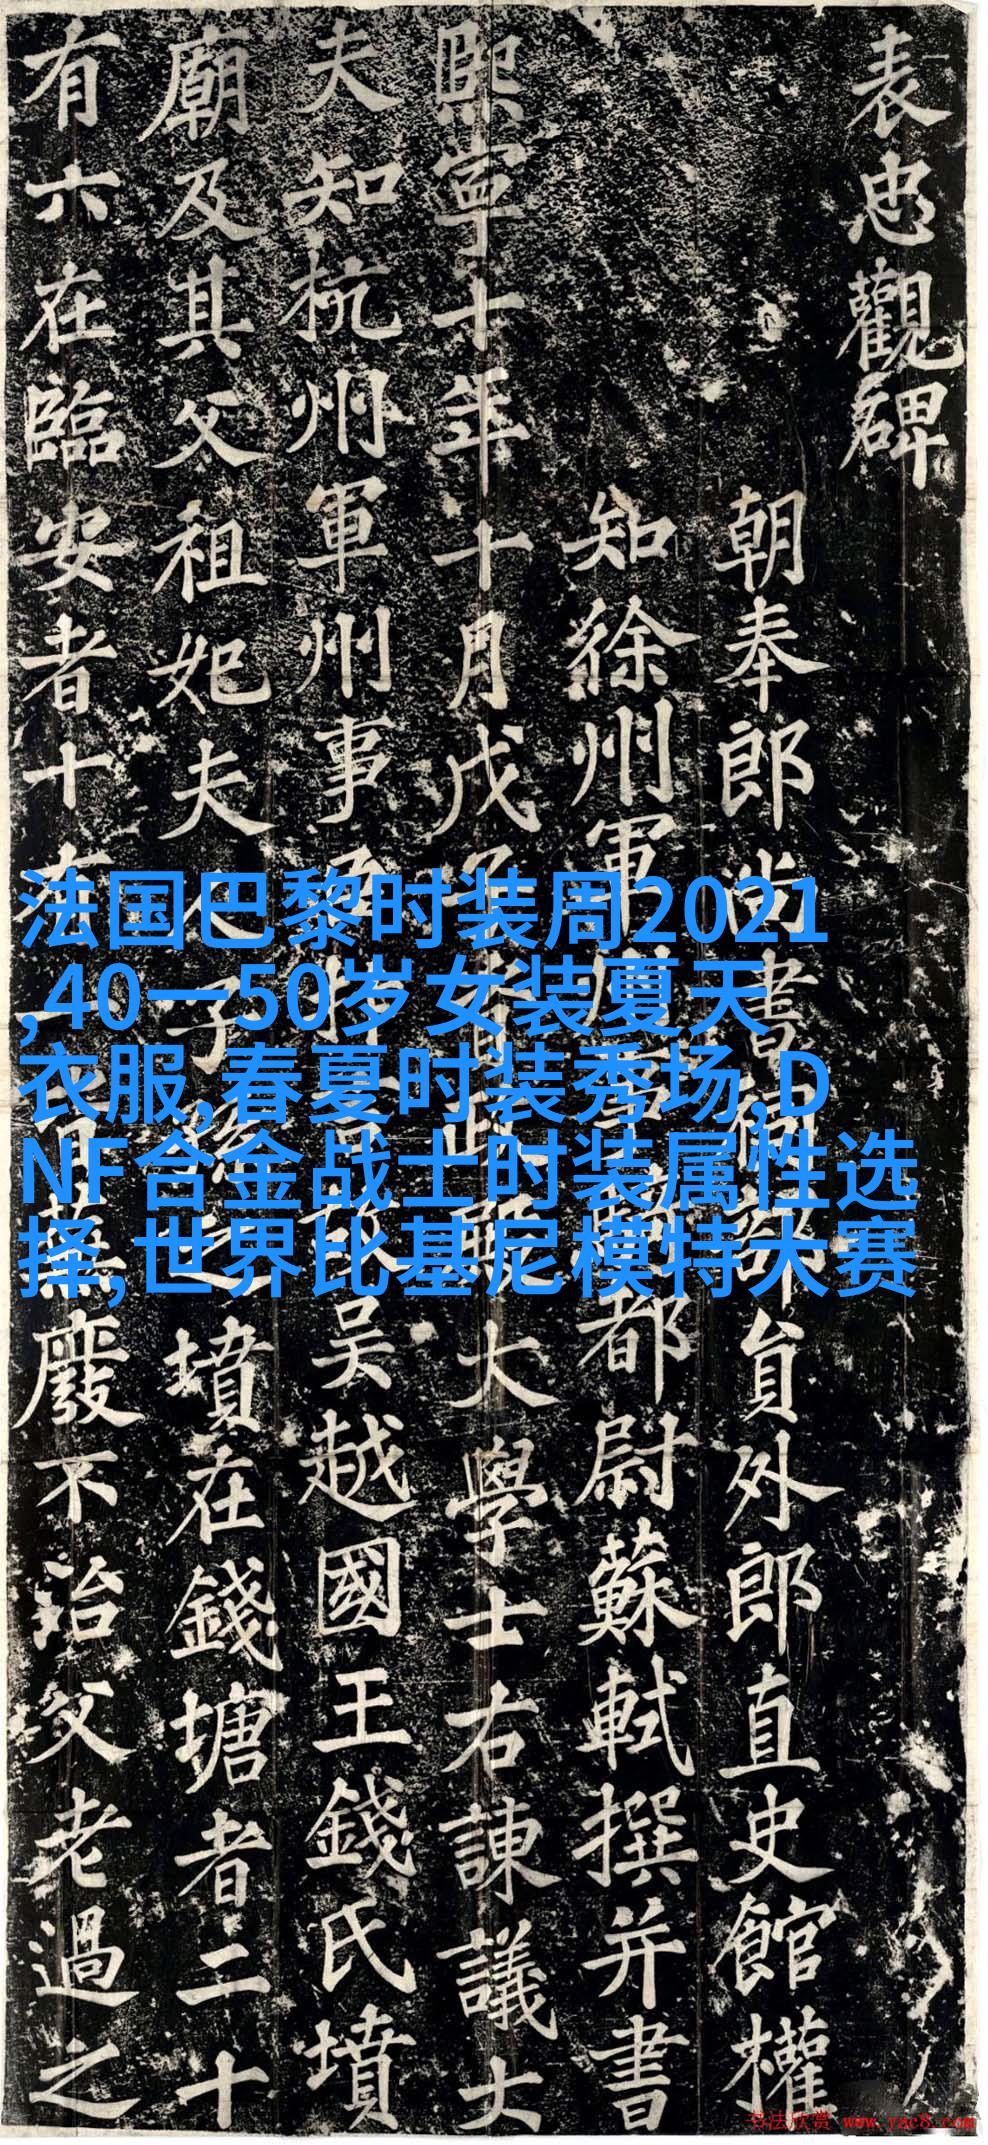 表忠觀碑
朝奉郎尚書祠部員外郎直史館權
知徐州軍州事騎都尉蘇軾撰并書
熙寧十年十月戊子資政殿大學士右諫議大
夫知杭州軍州事臣抃言故吳越國王錢氏墳
廟及其父祖妃夫人子孫之墳在錢塘者二十
有六在臨安者十有一皆蕪廢不治父老過之
法国巴黎时装周2021
,40一50岁女装夏天
衣服,春夏时装秀场,D
NF合金战士时装属性选
择,世界比基尼模特大赛
书法欣赏 www.yac8.com